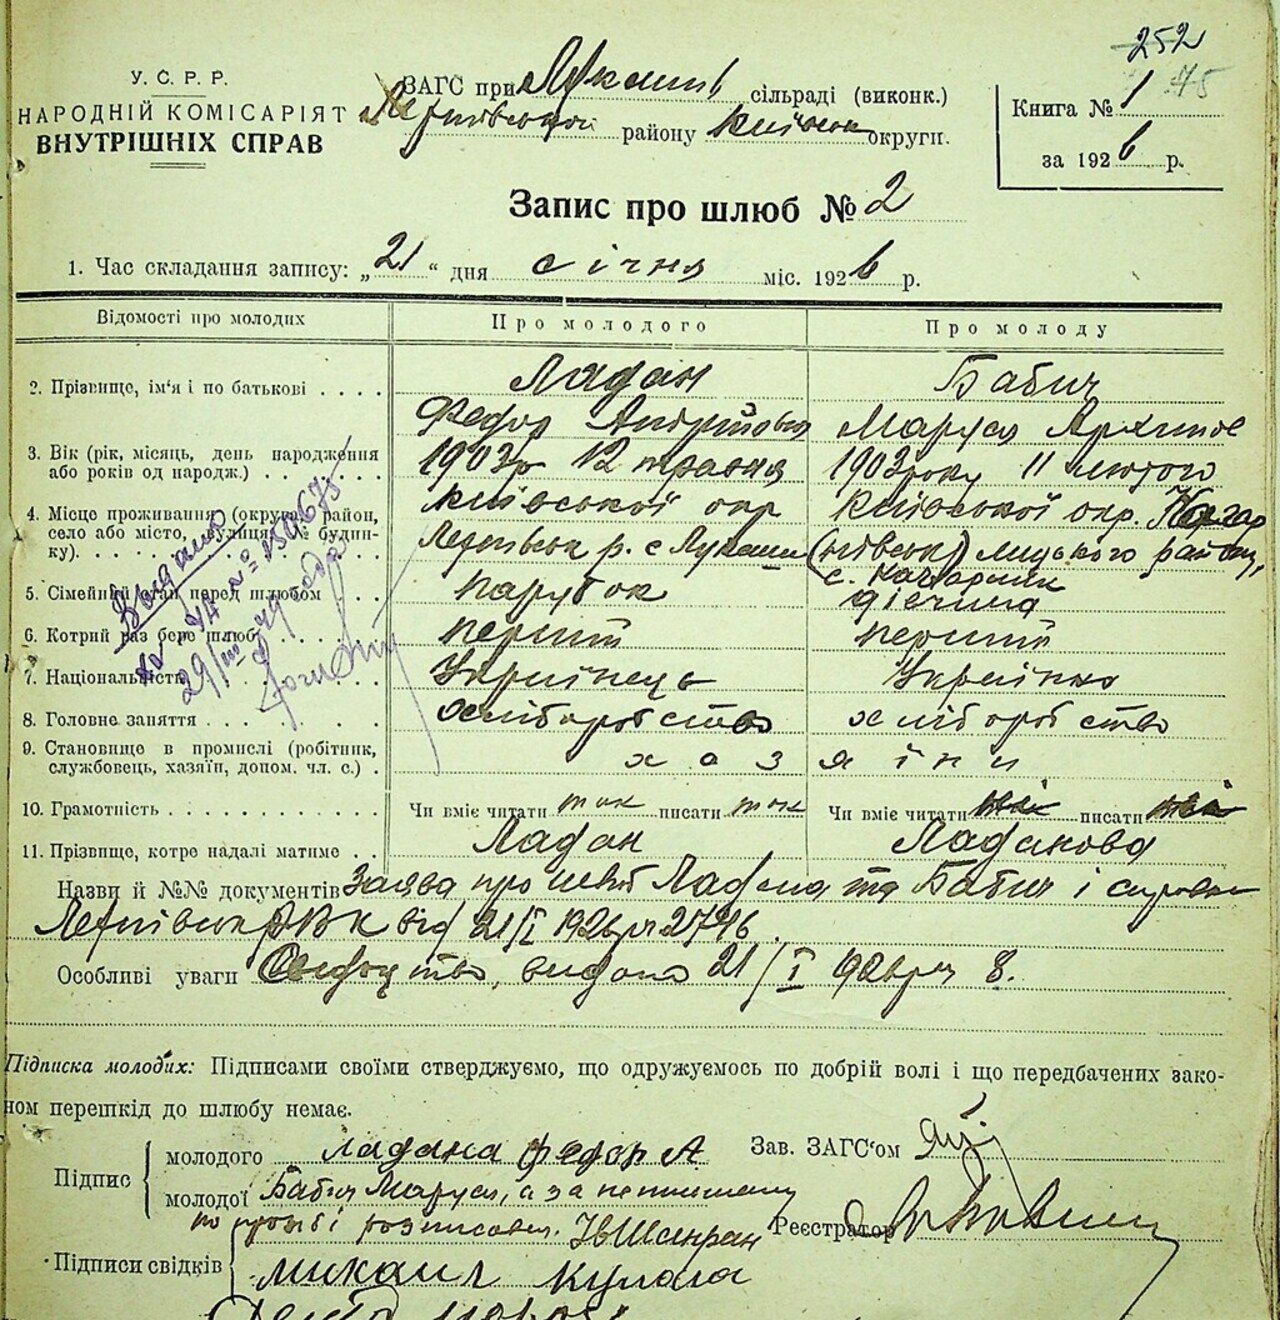 252
У. С. Р. Р.
НАРОДНІЙ КОМІСАРІЯТ
ВНУТРІШНІХ СПРАВ
ЗАГС при сільраді (виконк.)
району Київськ округи.
Книга № 1 75
за 1926 р.
Запис про шлюб № 2
1. Час складання запису: „21“ дня січня міс. 1926 р.
Відомості про молодих Про молодого Про молоду
2. Прізвище, ім'я і по батькові . . . . Ладан Бабич
Федор Маруся Архипов
3. Вік (рік, місяць, день народження 1903р 12 травня 1903року 11 лютого
або років од народж.)
4. Місце проживання (округа, район, Київської окр Київської окр.
село або місто, вулиця, № будин- р. с Лукаши району,
ку). с.
5. Сімейний стан перед шлюбом . . парубок дівчина
6. Котрий раз бере шлюб перший перший
7. Національність Українець Українка
8. Головне заняття хліборобство хліборобство
9. Становище в промислі (робітник,
службовець, хазяїн, допом. чл. с.) . хазяїни
10. Грамотність Чи вміє читати так писати так Чи вміє читати ні писати ні
11. Прізвище, котре надалі матиме . . Ладан Ладанова
Назви й №№ документів Заява про шлюб Ладана та Бабич і
РВК від 21/I 1926р № 2746.
Особливі уваги видано 21/I 926р № 8.
Підписка молодих: Підписами своїми стверджуємо, що одружуємось по добрій волі і що передбачених зако-
ном перешкід до шлюбу немає.
Підпис
молодого Ладана Федор А
Зав. ЗАГС'ом
молодої Бабич Маруся, а за неписьмену
по прозьбі розписався.
Реєстратор
Підписи свідків
Михаил Кулага